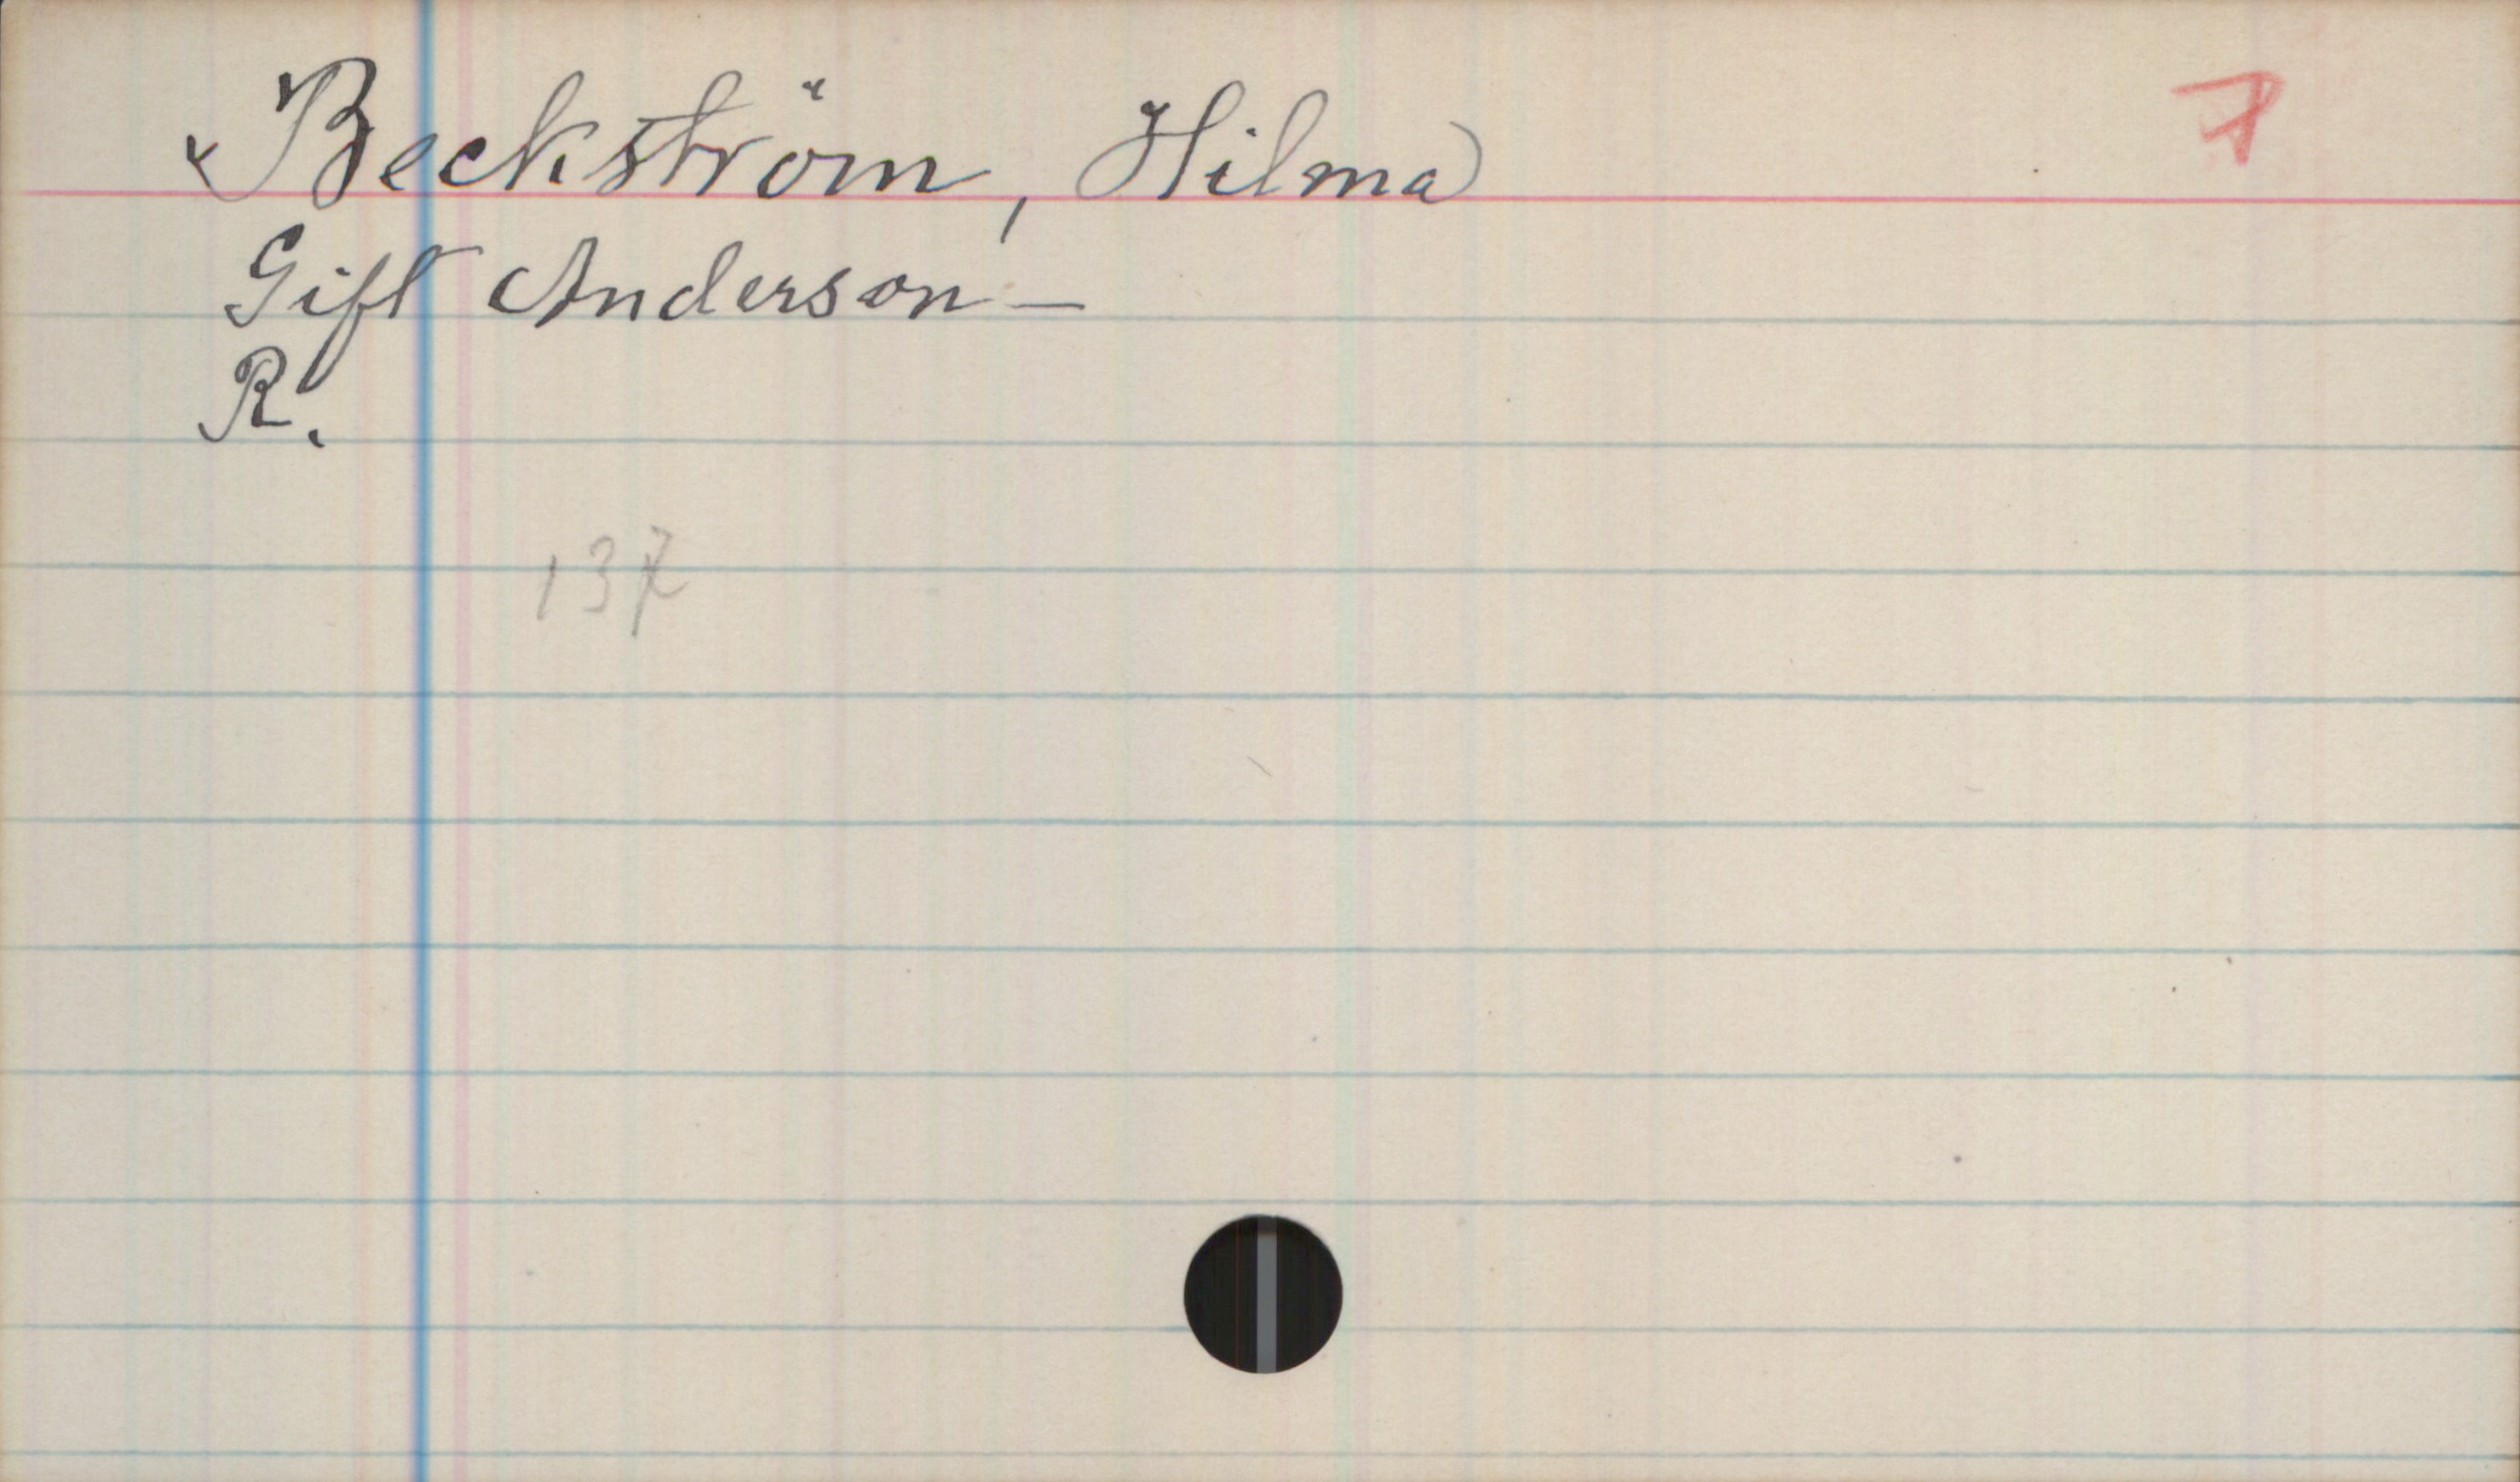 Beckström, Hilma 7
Gift Anderson —
R.
137